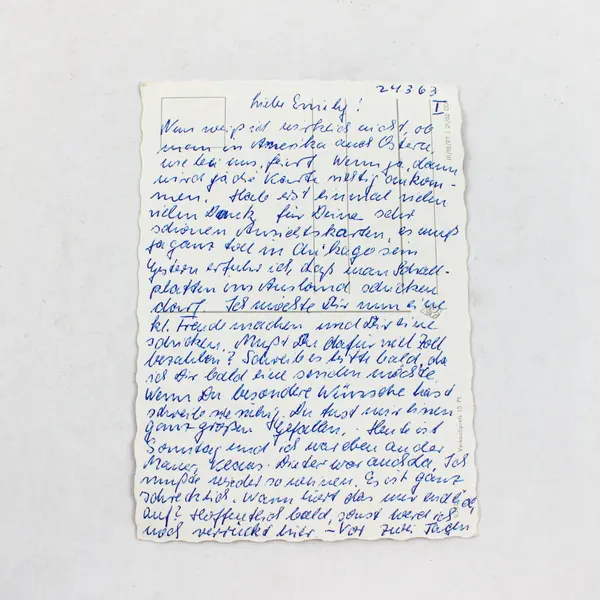 24 3 63
I
Liebe Emily!
Nun weiß ich wirklich nicht, ob
man in Amerika auch Ostern,
wie bei uns, feiert. Wenn ja, dann
wird ja die Karte richtig ankom-
men. Hab erst einmal vielen
vielen Dank für Deine sehr
schönen Ansichtskarten, es muß
ja ganz toll in Chikago sein
Gestern erfuhr ich, daß man Schall-
platten ins Ausland schicken
darf. Ich möchte Dir nun eine
kl. Freude machen und Dir eine
schicken. Mußt Du dafür viel Zoll
bezahlen? Schreib es bitte bald, da
ich Dir bald eine senden möchte.
Wenn Du besondere Wünsche hast
schreibe sie ruhig. Du tust mir einen
ganz großen Gefallen. – Heute ist
Sonntag und ich war eben an der
Mauer. Dieter war auch da. Ich
mußte wieder so weinen. Es ist ganz
schrecklich. Wann hört das nur endlich
auf? Hoffentlich bald, sonst werd ich
noch verrückt hier. – Vor zwei Tagen